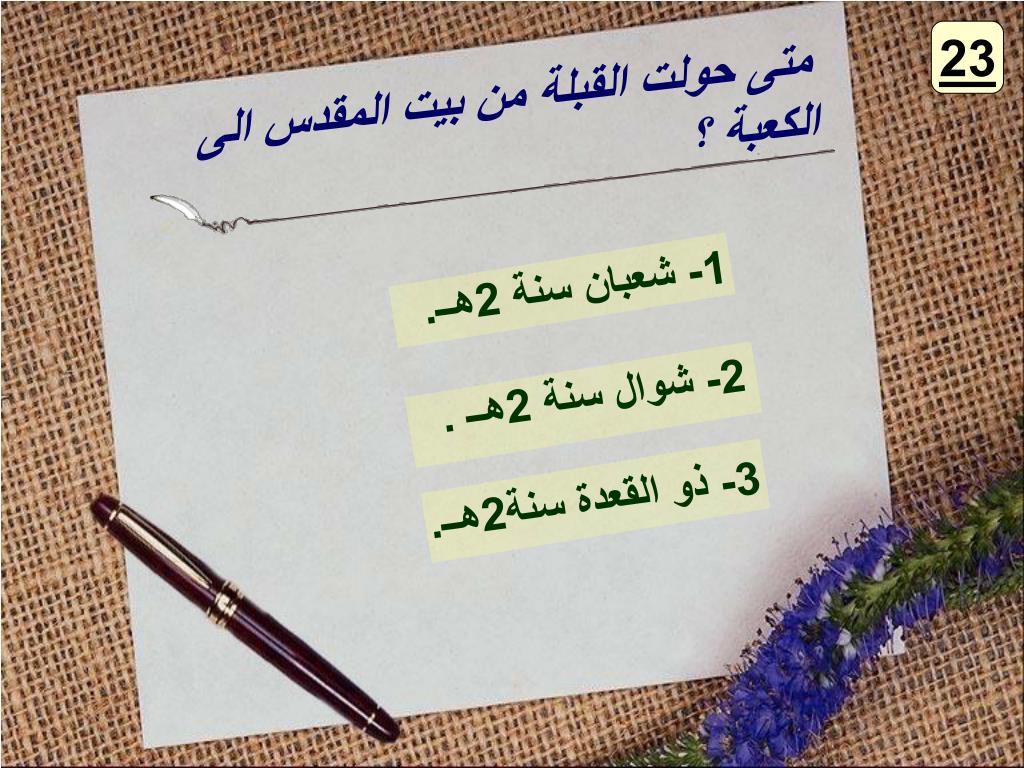 23
متى حولت القبلة من بيت المقدس الى
الكعبة ؟
1- شعبان سنة 2هـ.
2- شوال سنة 2هـ .
3- ذو القعدة سنة2هـ.